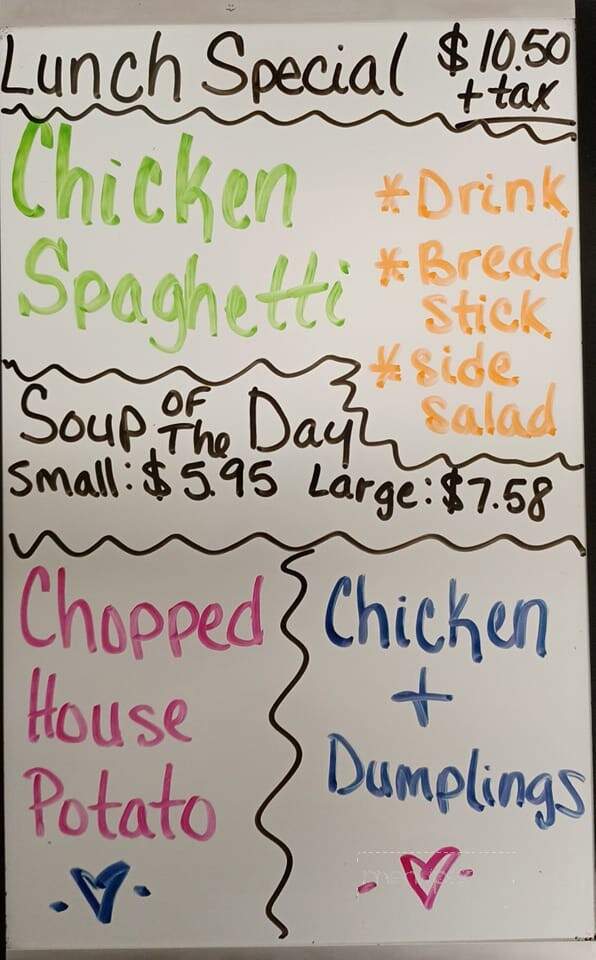 Lunch Special $10.50
+ tax
Chicken
Spaghetti
* Drink
* Bread
stick
* side
salad
Soup OF The Day
Small: $5.95 Large: $7.58
Chopped
House
Potato
Chicken
+
Dumplings